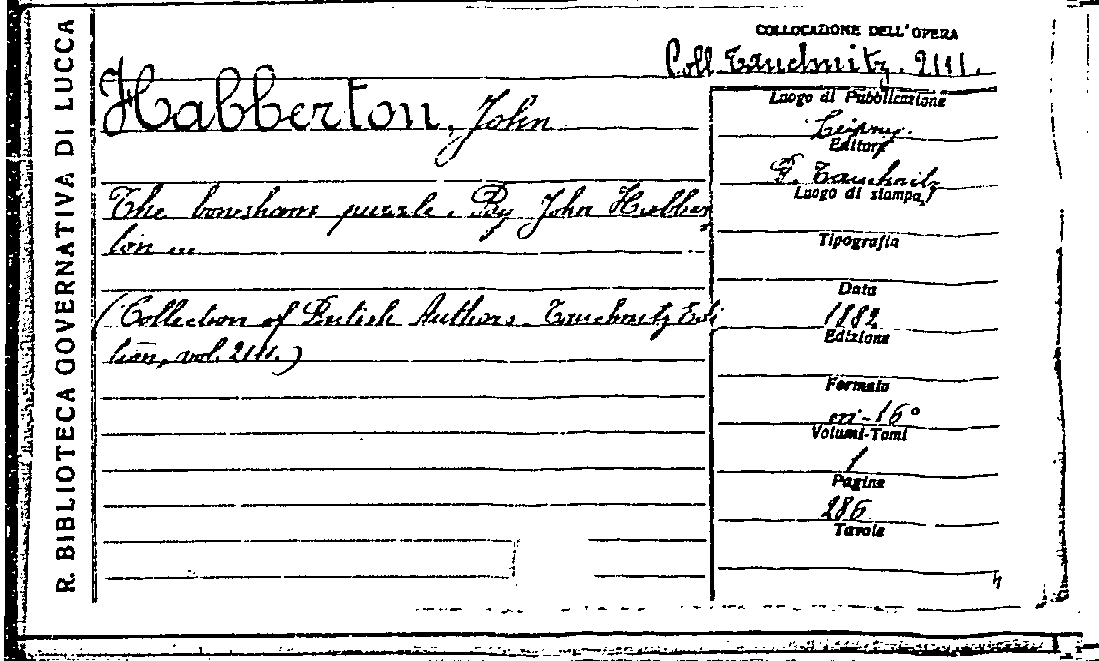 R. BIBLIOTECA GOVERNATIVA DI LUCCA
COLLOCAZIONE DELL'OPERA
Coll. Tauchnitz. 2111.
Habberton, John
The boneshams puzzle. By John Habber
ton ...
(Collection of British Authors. Tauchnitz Edi
tion, vol. 2111.)
Luogo di Pubblicazione
Leipzig.
Editore
B. Tauchnitz
Luogo di stampa
Tipografia
Data
1882
Edizione
Formato
in-16°
Volumi-Tomi
1
Pagine
286
Tavole